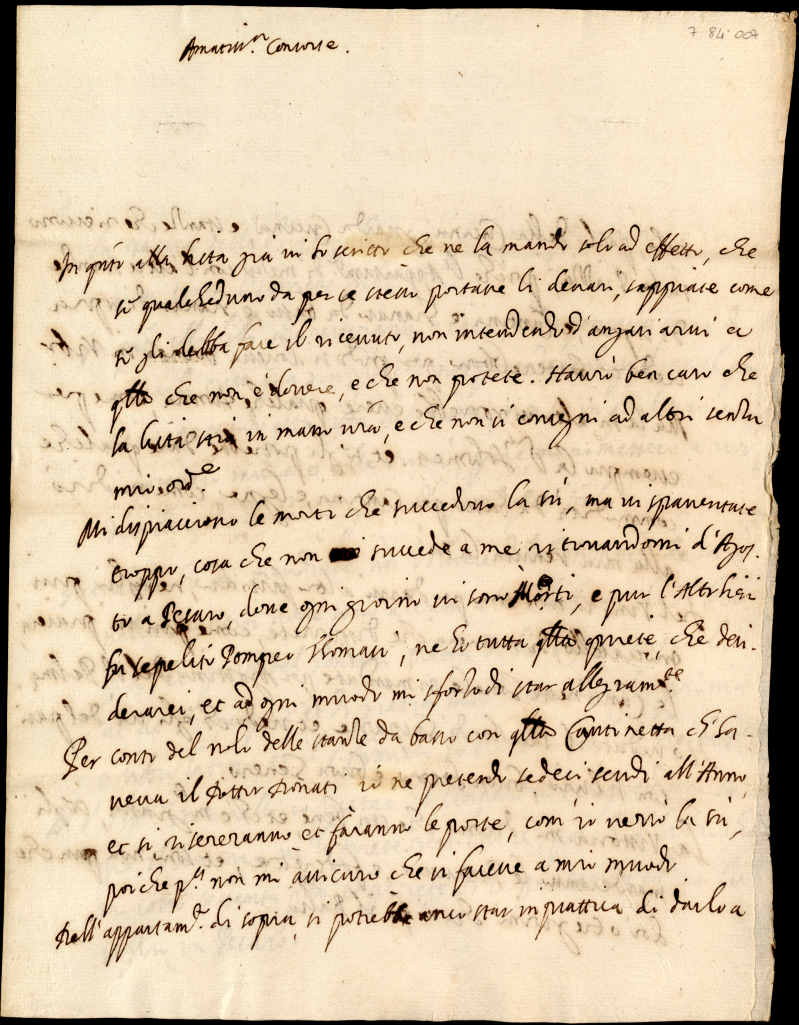 7 84 007
Amatiss.ma Consorte.
In q.sto alla lista già vi hò scritto che ne la mando solo ad effetto, che
se qualched'uno da per se stesso portasse li denari, sappiate come
se gli debba fare il ricevuto, non intendendo d'angariarvi a
q.llo che non è dovere, e che non potete. Haurò ben caro che
la lista stia in mano vra, e che non si consegni ad altri senza
mio ord.e
Mi dispiacciono le morti che succedono la sù, ma vi spaventate
troppo, cosa che non succede a me ritrovandomi d'Agos-
to a Pesaro, dove ogni giorno vi sono Morti, e pur l'Altr'hieri
fu sepelito Pompeo, ne hò tutta q.lla quiete, che desi-
derarei, et ad ogni modo mi sforzo di star allegram.te
Per conto del nolo delle stanze da basso con q.lla Cantinetta ch'ha-
veva il Dottor Donati io ne pretendo sedeci scudi all'Anno,
et si risereranno et faranno le porte, com'io verrò la sù,
poiche p.a non mi assicuro che si facesse a mio modo
Dell'appartam.to di sopra, si potrebbe anco star in prattica di darlo a